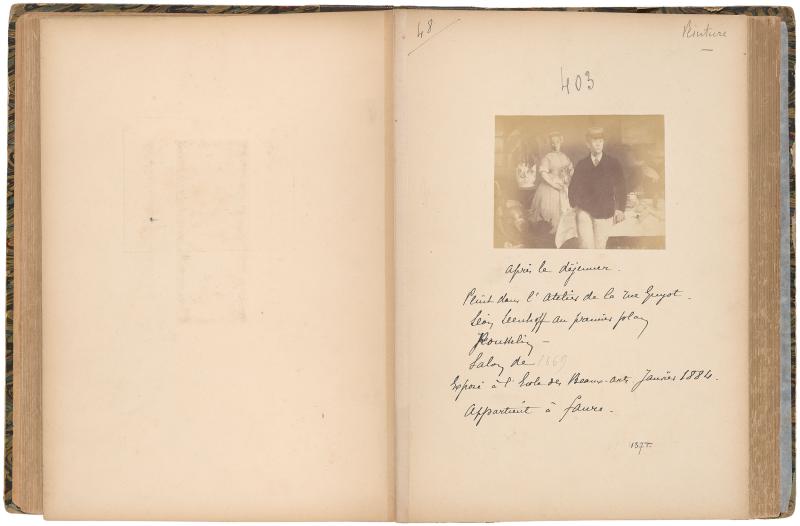 48
Peinture
403
après le déjeuner.
Peint dans l'atelier de la rue Guyot.
Léon Leenhoff au premier plan
Rousselin –
Salon de 1869
Exposé à l'École des Beaux-arts Janvier 1884.
Appartient à Faure.